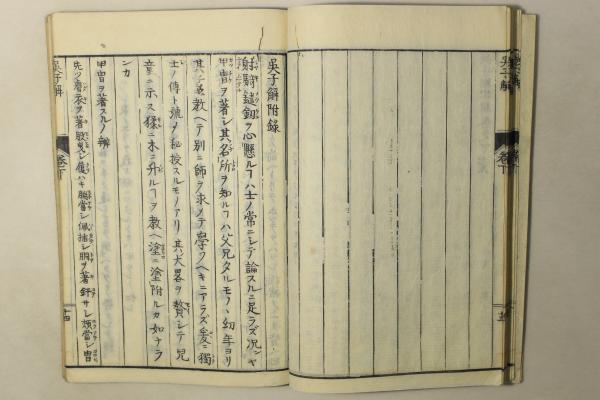 呉子解
巻下
呉子解附録
射騎鎗釼ヲ心懸ルヿハ士ノ常ニシテ論スルニ足ラズ況ンヤ
甲冑ヲ著シ其名所ヲ知ルヿハ父兄タルモノ、幼年ヨリ
其子ニ教ヘテ別ニ師ヲ求メテ學フヘキニアラズ爰ニ獨
士ノ傳ト號メ秘授スルモノアリ其大畧ヲ贅シテ兒
童ニ示ス猱ニ木ニ升ルヿヲ教ヘ塗ニ塗附ルカ如ナラ
ンカ
甲冑ヲ著スルノ辨
先ツ着衣ヲ著シハキ脇當シ佩楯シ胴ヲ著シ頬當シ冑
呉子解
巻下
十四